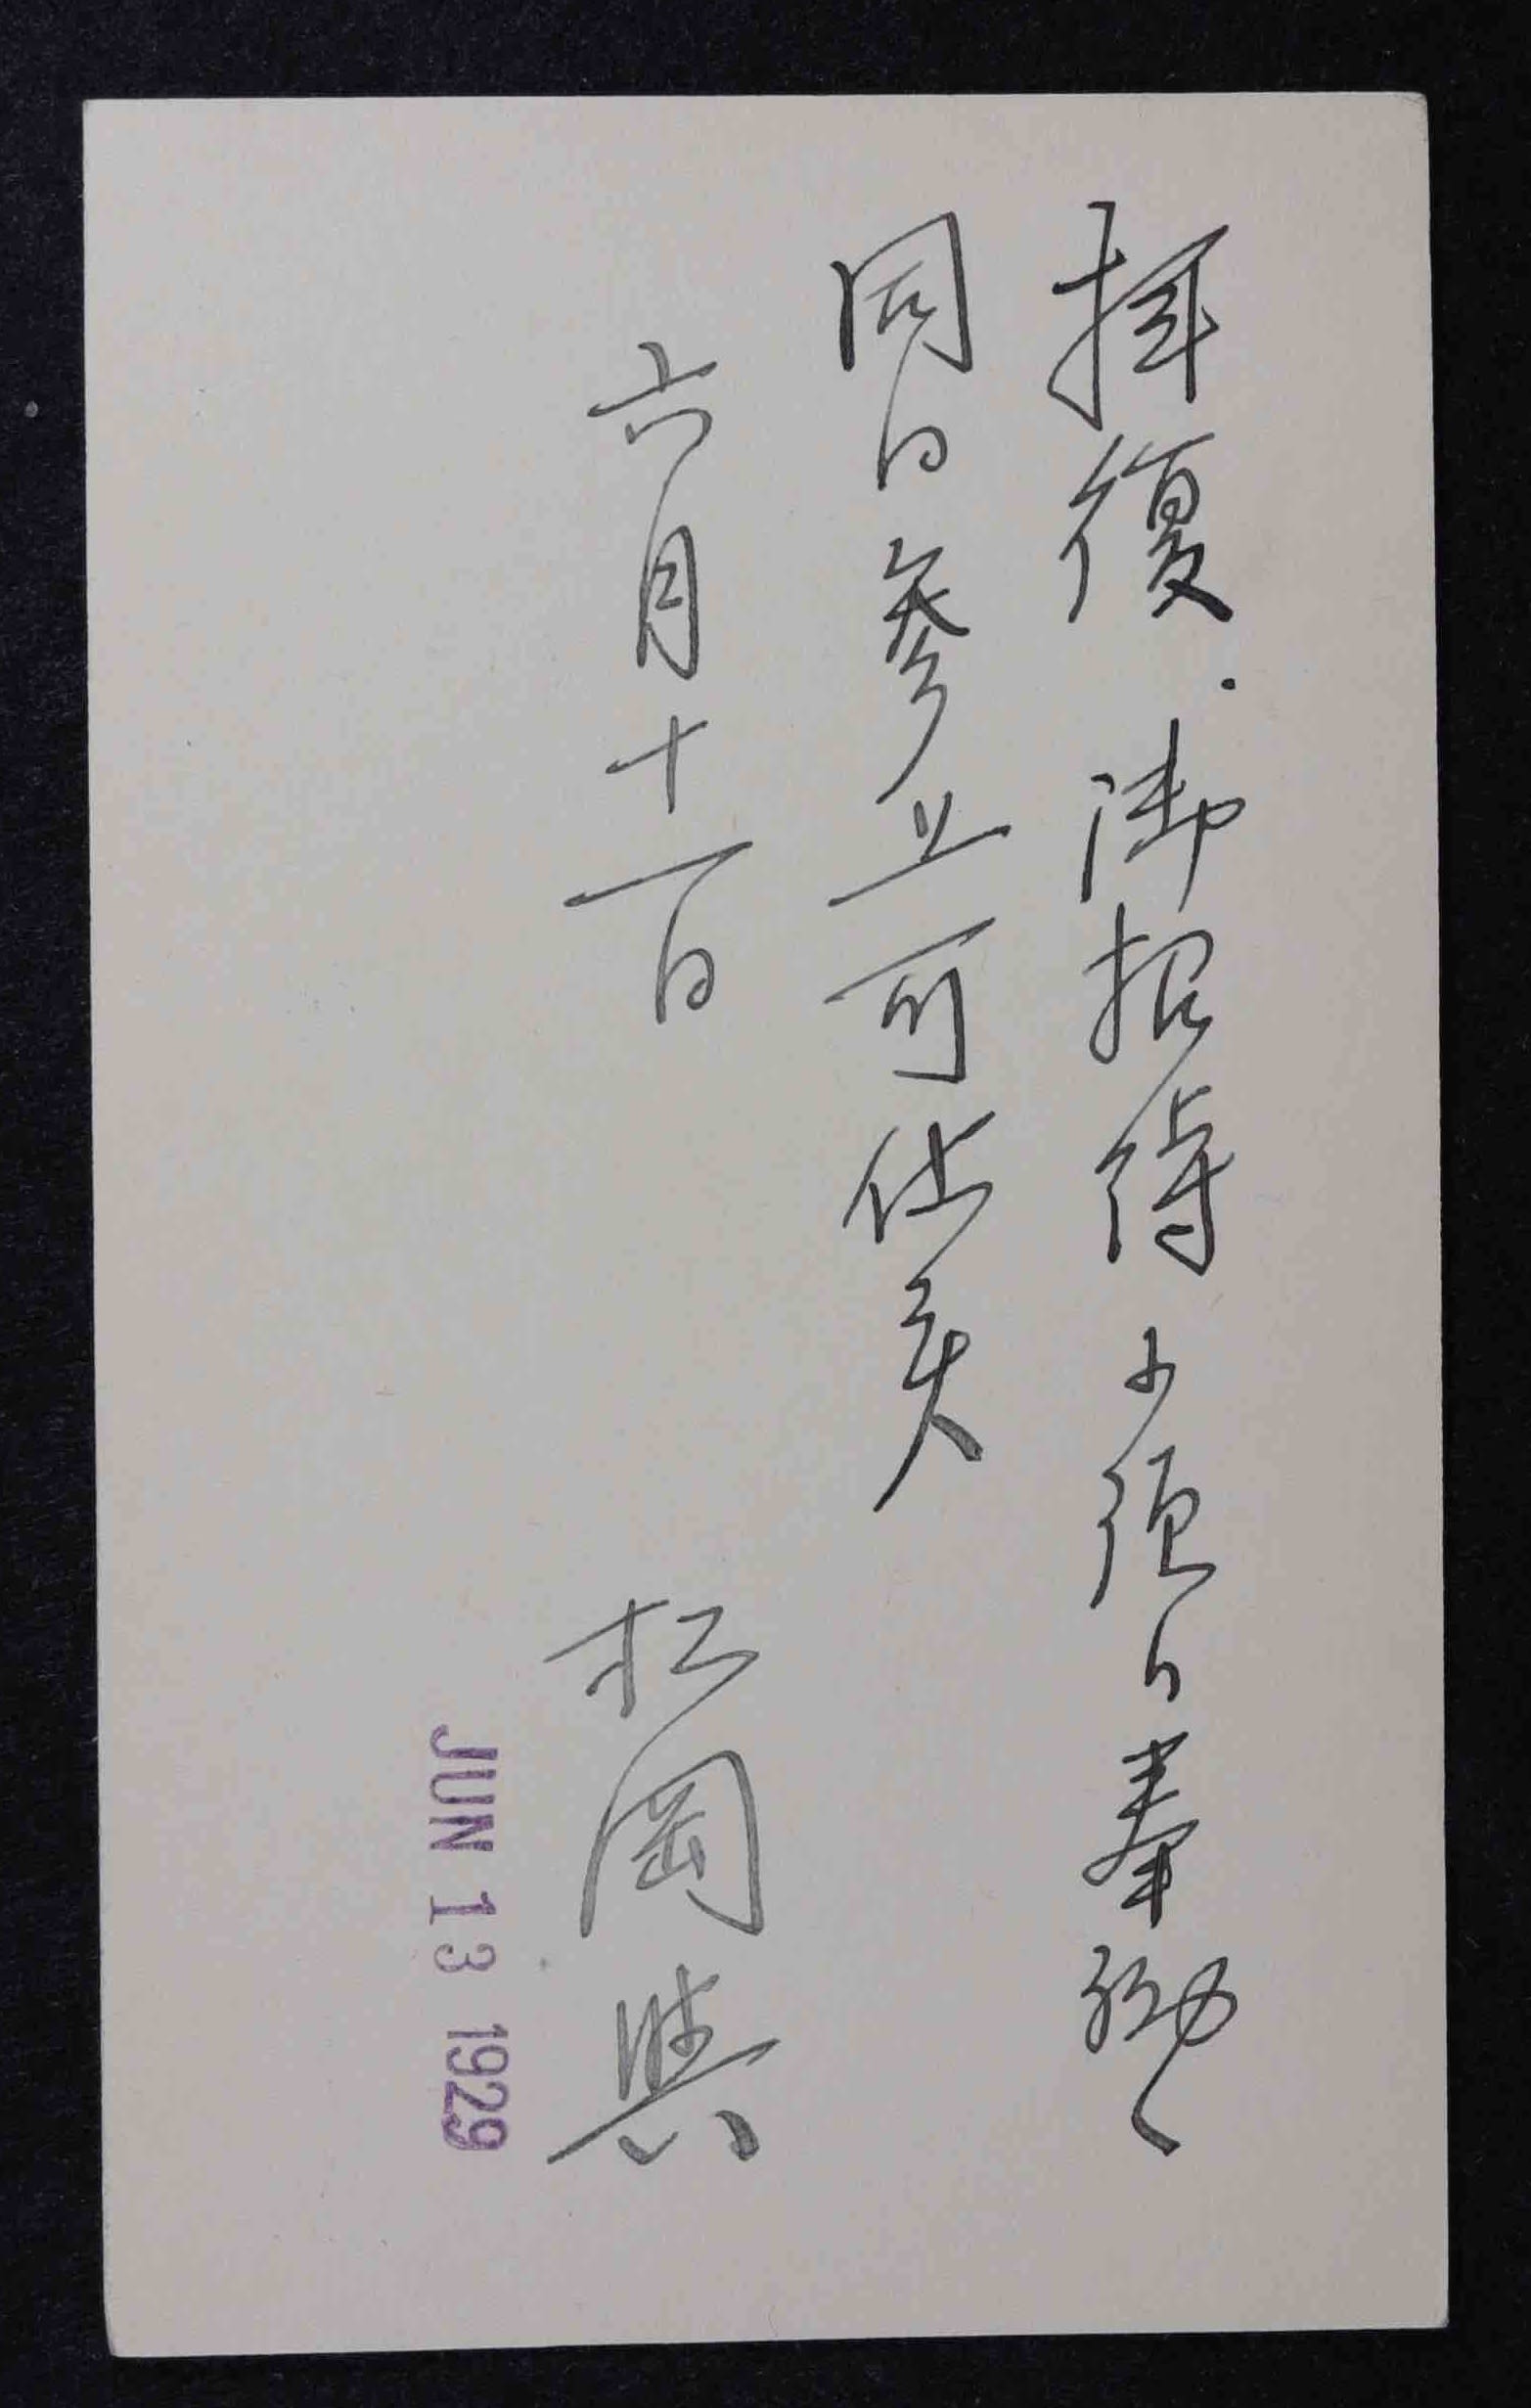 拝復.御招待に預り奉拝謝候
同日参上可仕候
六月十一日
松岡 興
JUN 13 1929